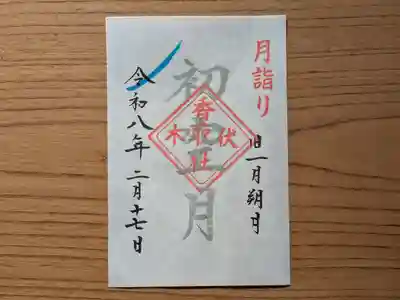 月詣り
旧一月朔日
初空月
伏木
香取社
令和八年 二月十七日